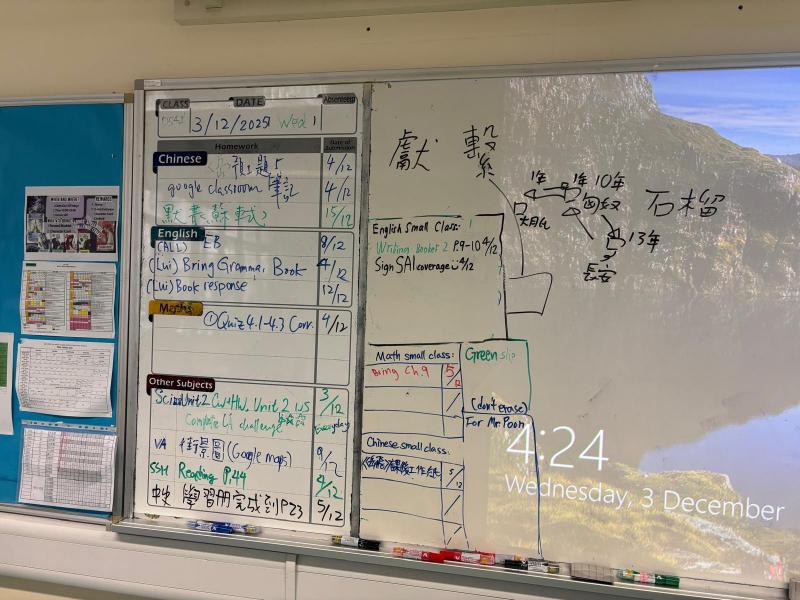 CLASS
DATE
Absentees
3/12/2025 Wed 1
Homework
Date of Submission
Chinese
預習題5 4/12
google classroom 筆記 4/12
15/12
English
(ALL) EB 8/12
(Lui) Bring Gramma. Book 4/12
(Lui) Book response 12/12
Maths
①Quiz 4.1-4.3 Corr. 4/12
Other Subjects
Unit 2 CW+HW. Unit 2 3/12
Complete challenge Everyday
VA 街景圖(Google maps) 9/12
SSH Reading P.44 4/12
學習冊完成到P23 5/12
獻 繫
English Small Class:
Writing Booklet 2 P.9-10 4/12
Sign SAI coverage 4/12
Math small class:
Bring Ch.9 5/12
Green slip
(don't erase)
For Mr Poon
Chinese small class:
課後工作紙 5/12
1年
1年
10年
匈奴
大月氏
13年
長安
石榴
4:24
Wednesday, 3 December